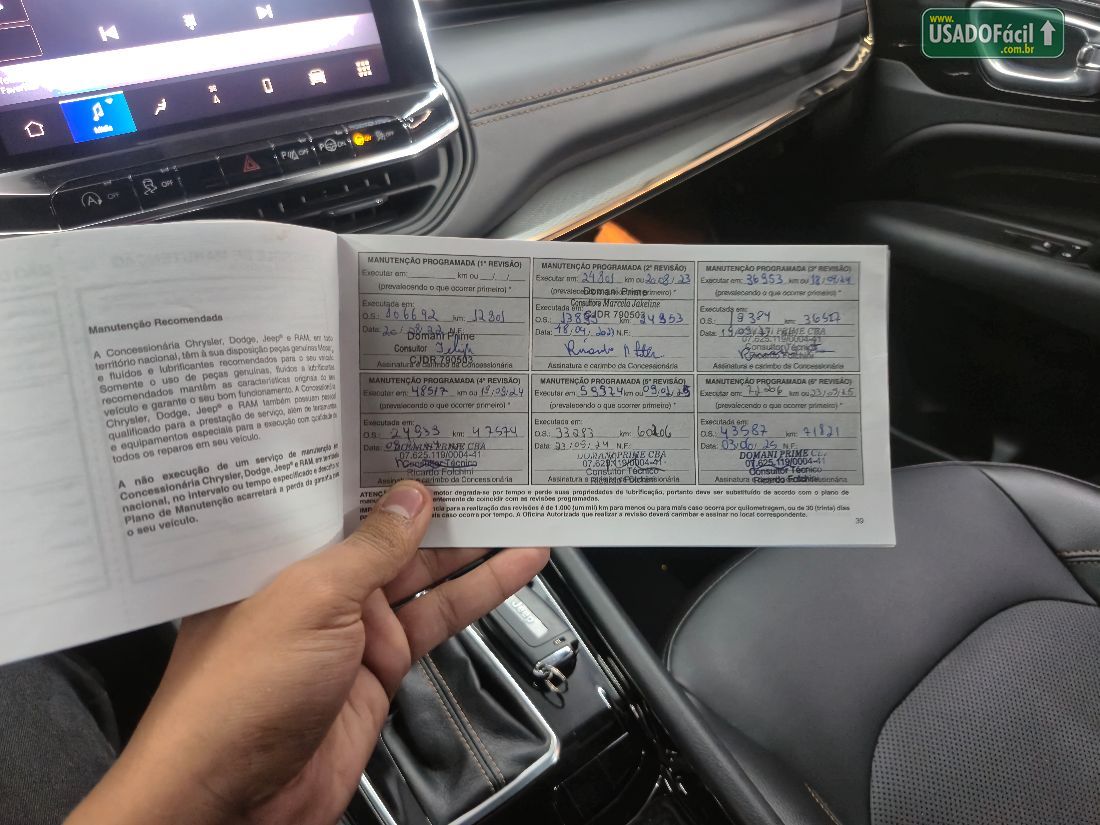 www.
USADOFácil
.com.br
Mídia
OFF
OFF
OFF
ON
OFF
Manutenção Recomendada
A Concessionária Chrysler, Dodge, Jeep® e RAM, em todo
território nacional, têm à sua disposição peças genuínas Mopar,
e fluidos e lubrificantes recomendados para o seu veículo.
Somente o uso de peças genuínas, fluidos e lubrificantes
recomendados mantêm as características originais do seu
veículo e garante o seu bom funcionamento. A Concessionária
Chrysler, Dodge, Jeep® e RAM também possuem pessoal
qualificado para a prestação de serviço, além de ferramentas
e equipamentos especiais para a execução com qualidade de
todos os reparos em seu veículo.
A não execução de um serviço de manutenção na
Concessionária Chrysler, Dodge, Jeep® e RAM, em território
nacional, no intervalo ou tempo especificado e descrito no
Plano de Manutenção acarretará a perda da garantia do
o seu veículo.
MANUTENÇÃO PROGRAMADA (1ª REVISÃO)
Executar em: km ou / /
(prevalecendo o que ocorrer primeiro) *
Executada em:
O.S.: 106692 km: 12801
Data: 20/08/22 N.F.:
Domani Prime
Consultor
CJDR 790503
Assinatura e carimbo da Concessionária
MANUTENÇÃO PROGRAMADA (2ª REVISÃO)
Executar em: 24801 km ou 20/08/23
(prevalecendo o que ocorrer primeiro) *
Domani Prime
Consultora Marcela Jakeline
CJDR 790503
Executada em:
O.S.: km: 24953
Data: 18/04/2023 N.F.:
Assinatura e carimbo da Concessionária
MANUTENÇÃO PROGRAMADA (3ª REVISÃO)
Executar em: 36953 km ou 18/04/24
(prevalecendo o que ocorrer primeiro) *
Executada em:
O.S.: 19384 km: 36517
Data: N.F.:
PRIME CBA
Consultor Técnico
Ricardo Folchini
Assinatura e carimbo da Concessionária
MANUTENÇÃO PROGRAMADA (4ª REVISÃO)
Executar em: 48517 km ou
(prevalecendo o que ocorrer primeiro) *
Executada em:
O.S.: 24933 km: 47574
Data: N.F.:
PRIME CBA
07.625.119/0004-41
Consultor Técnico
Ricardo Folchini
Assinatura e carimbo da Concessionária
MANUTENÇÃO PROGRAMADA (5ª REVISÃO)
Executar em: 59574 km ou 09/02/25
(prevalecendo o que ocorrer primeiro) *
Executada em:
O.S.: 33283 km: 60206
Data: 23/09/24 N.F.:
DOMANI PRIME CBA
07.625.119/0004-41
Consultor Técnico
Ricardo Folchini
Assinatura e carimbo da Concessionária
MANUTENÇÃO PROGRAMADA (6ª REVISÃO)
Executar em: 72206 km ou 23/09/25
(prevalecendo o que ocorrer primeiro) *
Executada em:
O.S.: 43587 km: 71821
Data: 03/06/25 N.F.:
DOMANI PRIME CBA
07.625.119/0004-41
Consultor Técnico
Ricardo Folchini
Assinatura e carimbo da Concessionária
motor degrada-se por tempo e perde suas propriedades de lubrificação, portanto deve ser substituído de acordo com o plano de
entemente de coincidir com as revisões programadas.
ância para a realização das revisões é de 1.000 (um mil) km para menos ou para mais caso ocorra por quilometragem, ou de 30 (trinta) dias
ais caso ocorra por tempo. A Oficina Autorizada que realizar a revisão deverá carimbar e assinar no local correspondente.
39
JEEP